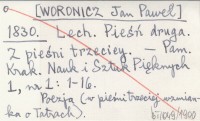 [WORONICZ Jan Paweł]
1830. Lech. Pieśń druga.
Z pieśni trzeciey. — Pam.
Krak. Nauk i Sztuk Pięknych
1, nr 1: 1-16.
Poezja (w pieśni trzeciej wzmian-
ka o Tatrach).